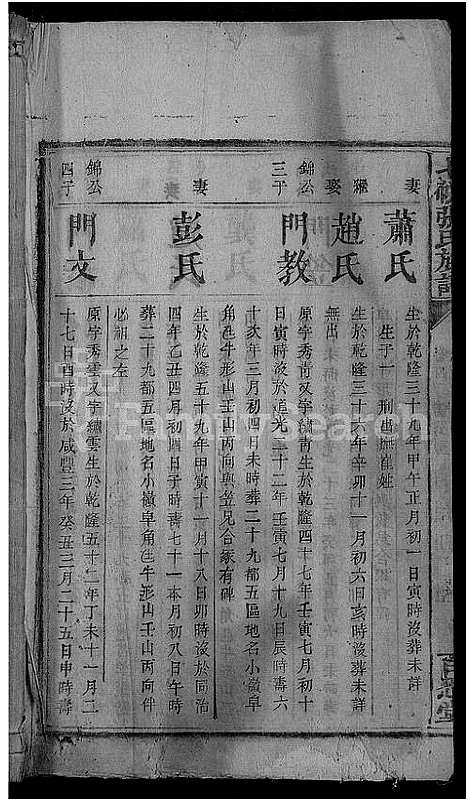 張氏族譜
妻
蕭氏
生於乾隆三十九年甲午正月初一日寅時沒葬未詳
生子一
繼娶
趙氏
生於乾隆三十六年辛卯十一月初六日亥時沒葬未詳
無出
錦公三子
門教
原字秀青又字續青生於乾隆四十七年壬寅七月初十
日寅時沒於道光二十二年壬寅七月十九日辰時壽六
十一
妻
十亥年三月初四日未時葬二十九都五區地名小嶺阜
角邑牛形山壬山丙向與笠兄合冢有碑
彭氏
生於乾隆五十九年甲寅十一月十八日卯時沒於同治
四年乙丑四月初四日子時壽七十一本月初八日午時
葬二十九都五區地名小嶺阜角邑牛形山壬山丙向伴
必祖之左
錦公四子
門文
原字秀雲又字續雲生於乾隆五十二年丁未十一月二
十七日酉時沒於咸豐三年癸丑三月二十五日申時壽
FamilySearch